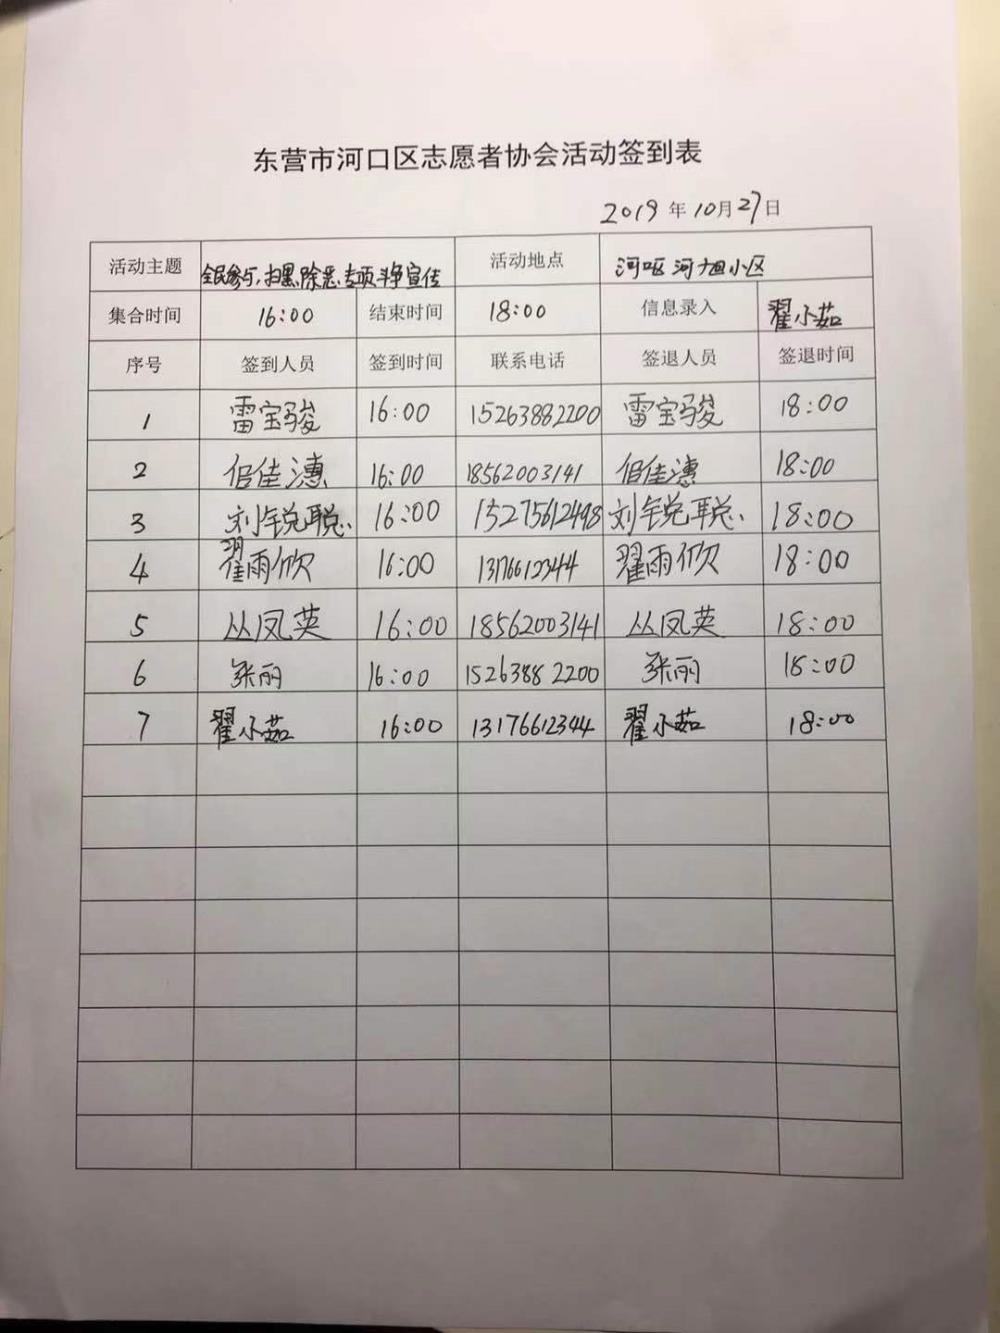 东营市河口区志愿者协会活动签到表
2019年10月27日
活动主题 全民参与,扫黑除恶专项斗争宣传 活动地点 河口区河旭小区
集合时间 16:00 结束时间 18:00 信息录入 翟小茹
序号 签到人员 签到时间 联系电话 签退人员 签退时间
1 雷宝骏 16:00 15263882200 雷宝骏 18:00
2 佀佳潓 16:00 18562003141 佀佳潓 18:00
3 刘锐聪 16:00 15275612498 刘锐聪 18:00
4 翟雨欣 16:00 13176612344 翟雨欣 18:00
5 丛凤英 16:00 18562003141 丛凤英 18:00
6 张丽 16:00 15263882200 张丽 18:00
7 翟小茹 16:00 13176612344 翟小茹 18:00